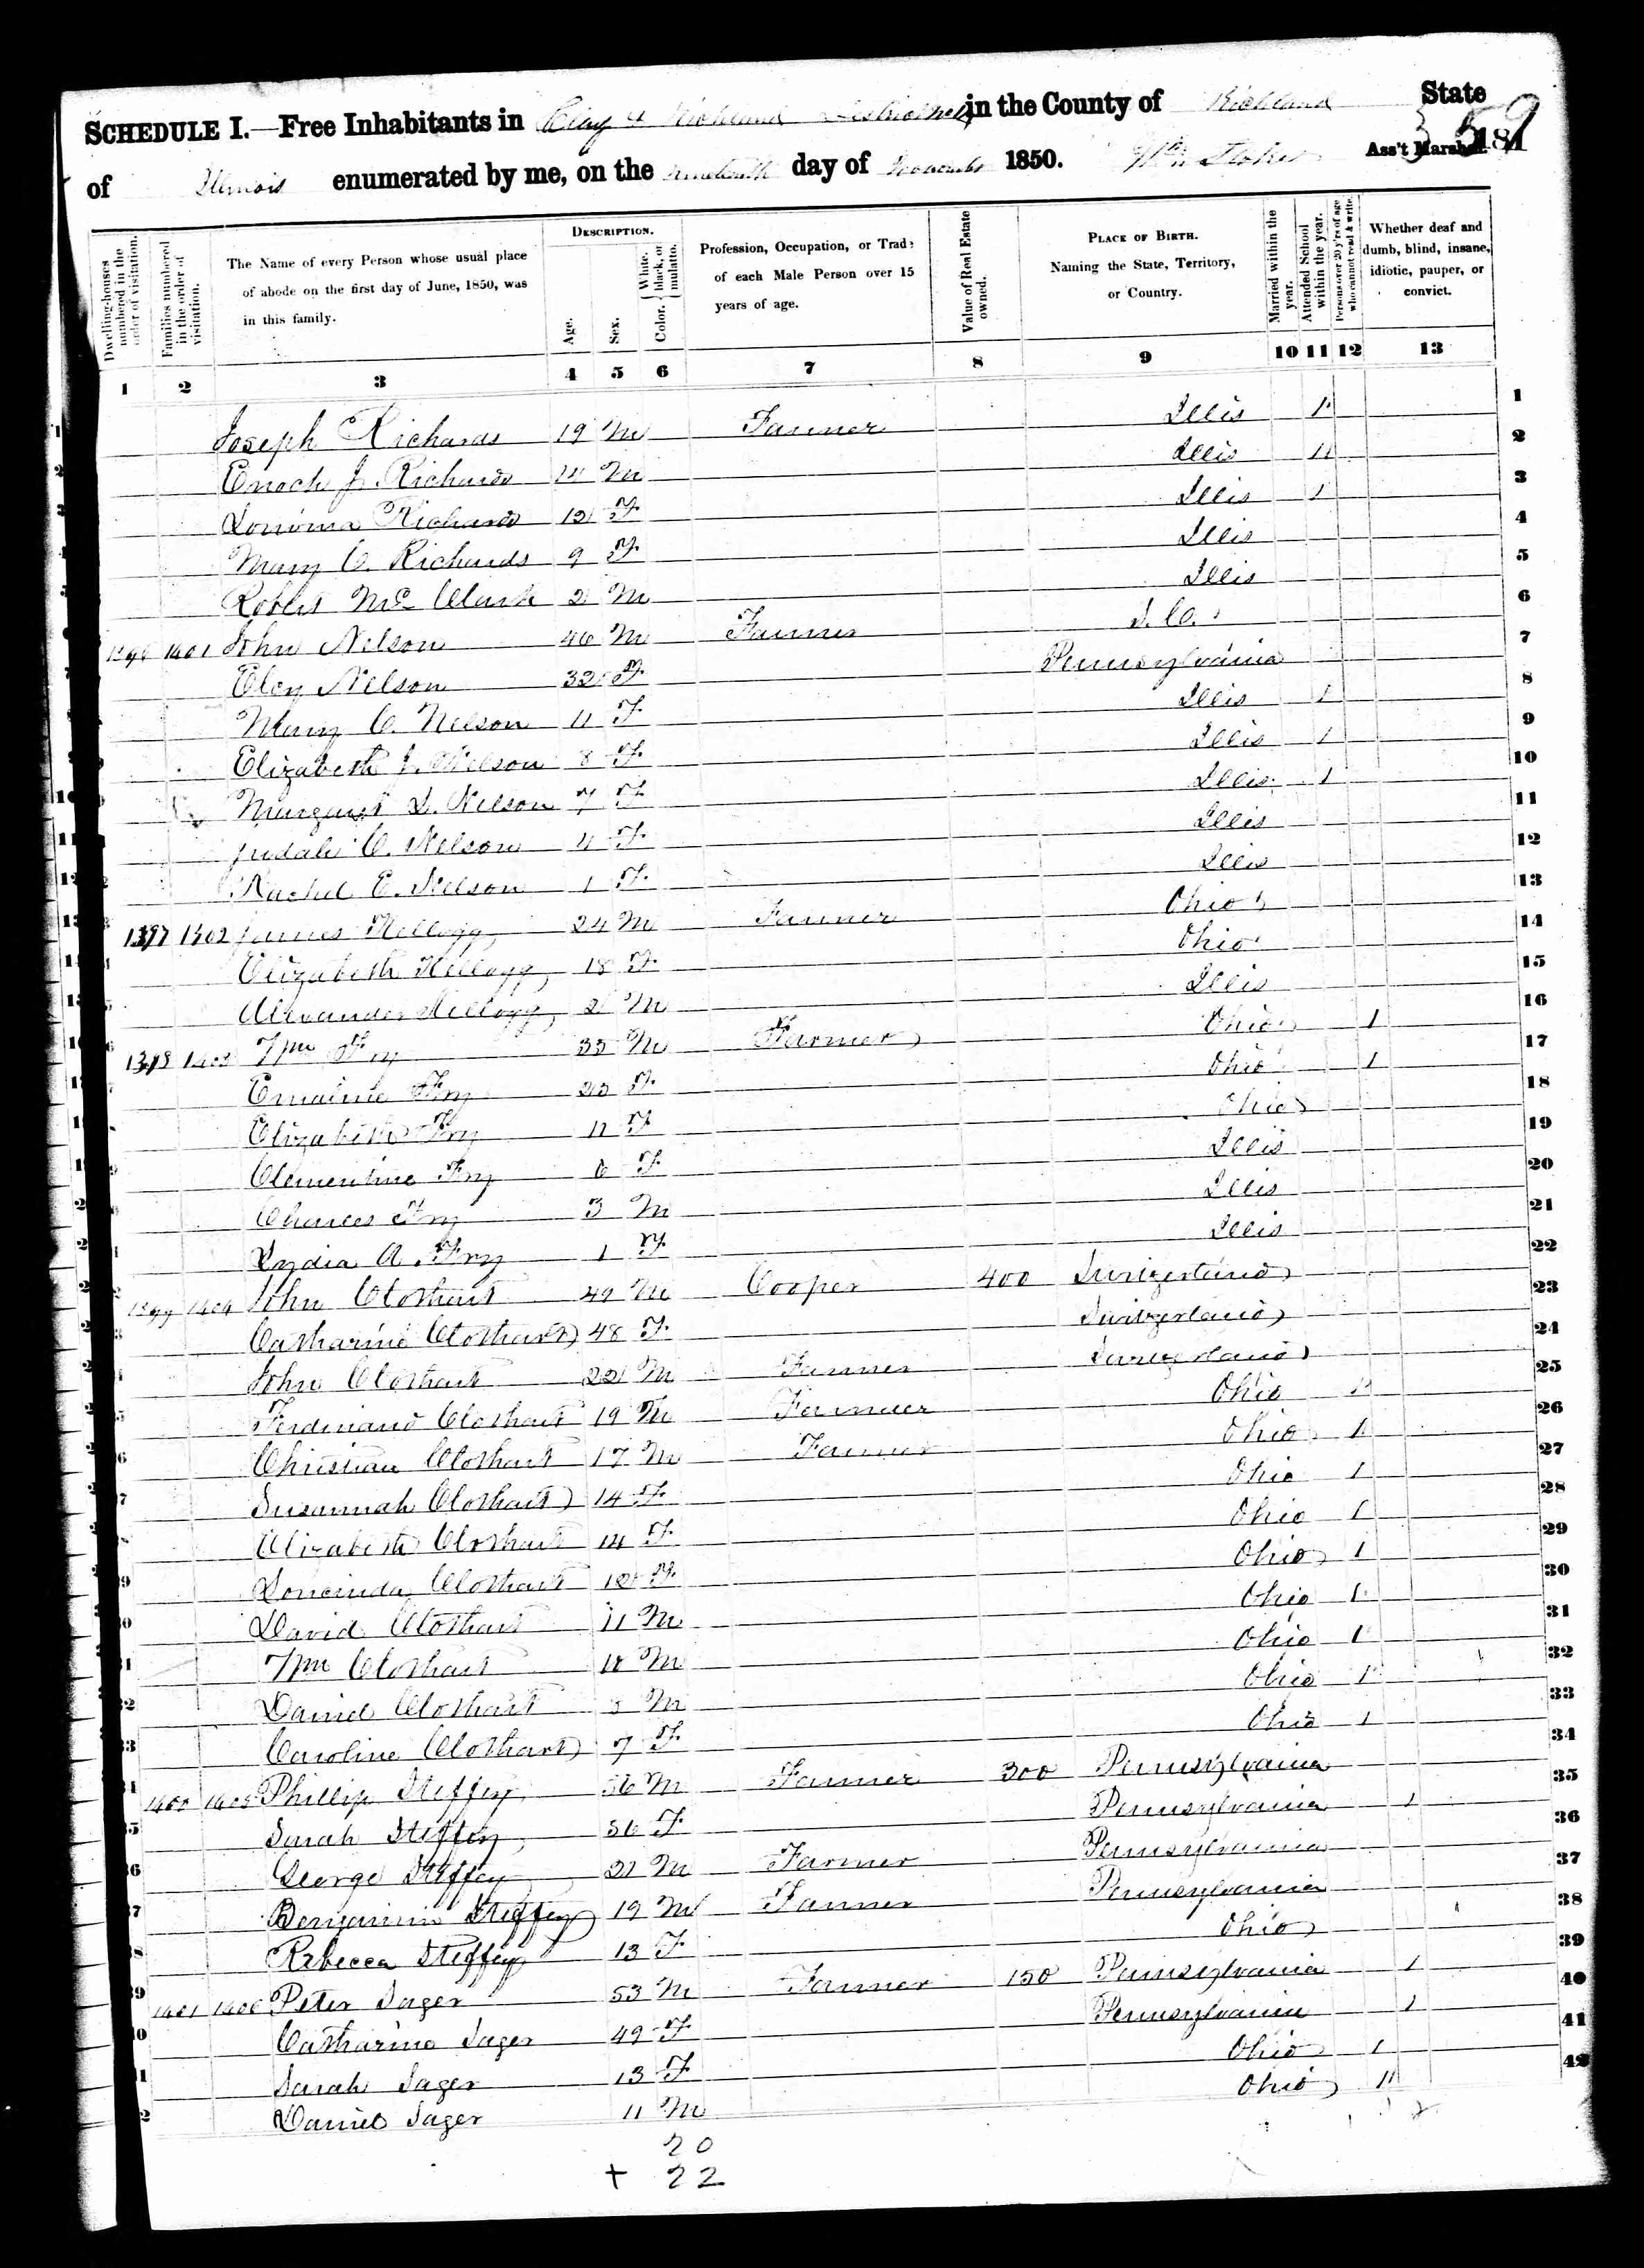 SCHEDULE I.—Free Inhabitants in Clay & Richland in the County of Richland State
of Illinois enumerated by me, on the nineteenth day of November 1850. Wm Stokes Ass't Marshal.
Dwelling-houses numbered in the order of visitation.
Families numbered in the order of visitation.
The Name of every Person whose usual place of abode on the first day of June, 1850, was in this family.
DESCRIPTION.
Age.
Sex.
Color. White, black, or mulatto.
Profession, Occupation, or Trade of each Male Person over 15 years of age.
Value of Real Estate owned.
PLACE OF BIRTH. Naming the State, Territory, or Country.
Married within the year.
Attended School within the year.
Persons over 20 y'rs of age who cannot read & write.
Whether deaf and dumb, blind, insane, idiotic, pauper, or convict.
1 2 3 4 5 6 7 8 9 10 11 12 13
Joseph Richards 19 M Farmer Illis 1 1
Enoch J. Richards 14 M Illis 1 2
Richards 12 F Illis 1 3
Mary C. Richards 9 F Illis 4
Robert Mc Clark 2 M Illis 5
1396 1401 John Nelson 46 M Farmer S. C. 6
Nelson 32 F Pennsylvania 7
Mary C. Nelson 11 F Illis 1 8
Elizabeth J. Nelson 8 F Illis 1 9
Margaret Nelson 7 F Illis 1 10
Nelson 4 F Illis 11
Rachel E. Nelson 1 F Illis 12
1397 1402 James Kellogg 24 M Farmer Ohio 13
Elizabeth Kellogg 18 F Ohio 14
Alexander Kellogg 2 M Illis 15
1398 1403 Wm Fry 35 M Farmer Ohio 1 16
Emaline Fry 25 F Ohio 1 17
Elizabeth Fry 11 F Ohio 18
Clementine Fry 6 F Illis 19
Charles Fry 3 M Illis 20
Lydia A. Fry 1 F Illis 21
1399 1404 John Clothart 49 M Cooper 400 Switzerland 22
Catharine Clothart 48 F Switzerland 23
John Clothart 22 M Farmer Switzerland 24
Ferdinand Clothart 19 M Farmer Ohio 1 25
Christian Clothart 17 M Farmer Ohio 1 26
Susannah Clothart 14 F Ohio 1 27
Elizabeth Clothart 14 F Ohio 1 28
Loucinda Clothart 12 F Ohio 1 29
David Clothart 11 M Ohio 1 30
Wm Clothart M Ohio 1 31
Daniel Clothart M Ohio 1 32
Caroline Clothart 7 F Ohio 1 33
1400 1405 Phillip Steffey 56 M Farmer 300 Pennsylvania 34
Sarah Steffey 56 F Pennsylvania 1 35
George Steffey 21 M Farmer Pennsylvania 36
Benjamin Steffey 19 M Farmer Pennsylvania 37
Rebecca Steffey 13 F Ohio 38
1401 1406 Peter Sager 53 M Farmer 150 Pennsylvania 1 39
Catharine Sager 49 F Pennsylvania 1 40
Sarah Sager 13 F Ohio 1 41
Daniel Sager 11 M Ohio 1 42
20
+ 22